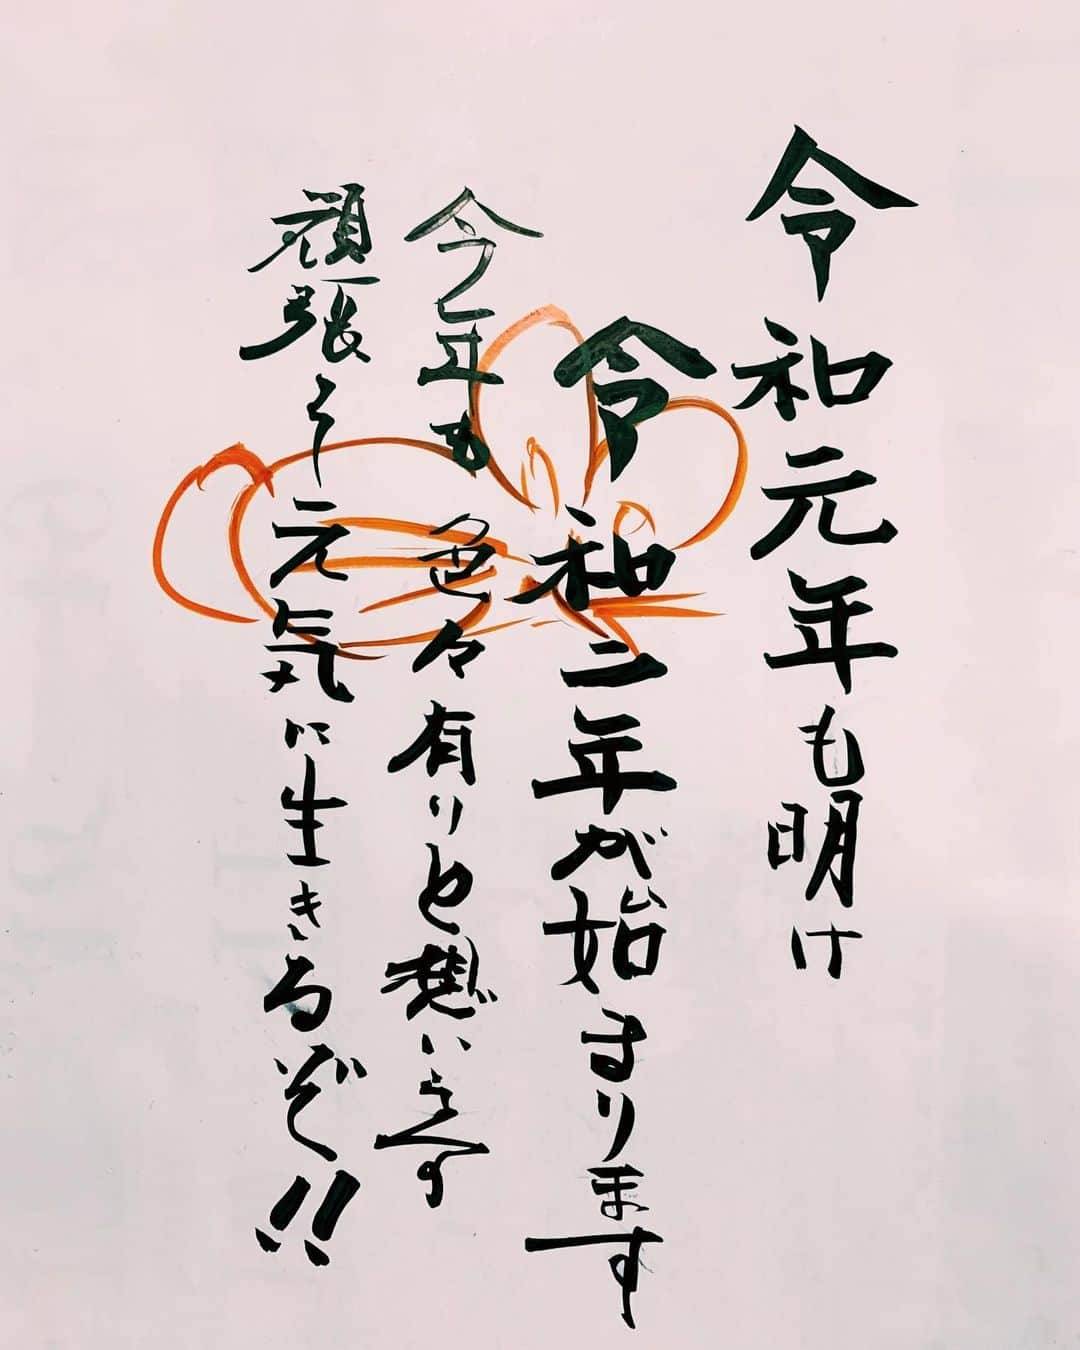 令和元年も明け
令和二年が始まります
今年も色々有りと想います
頑張って元気に生きるぞ!!